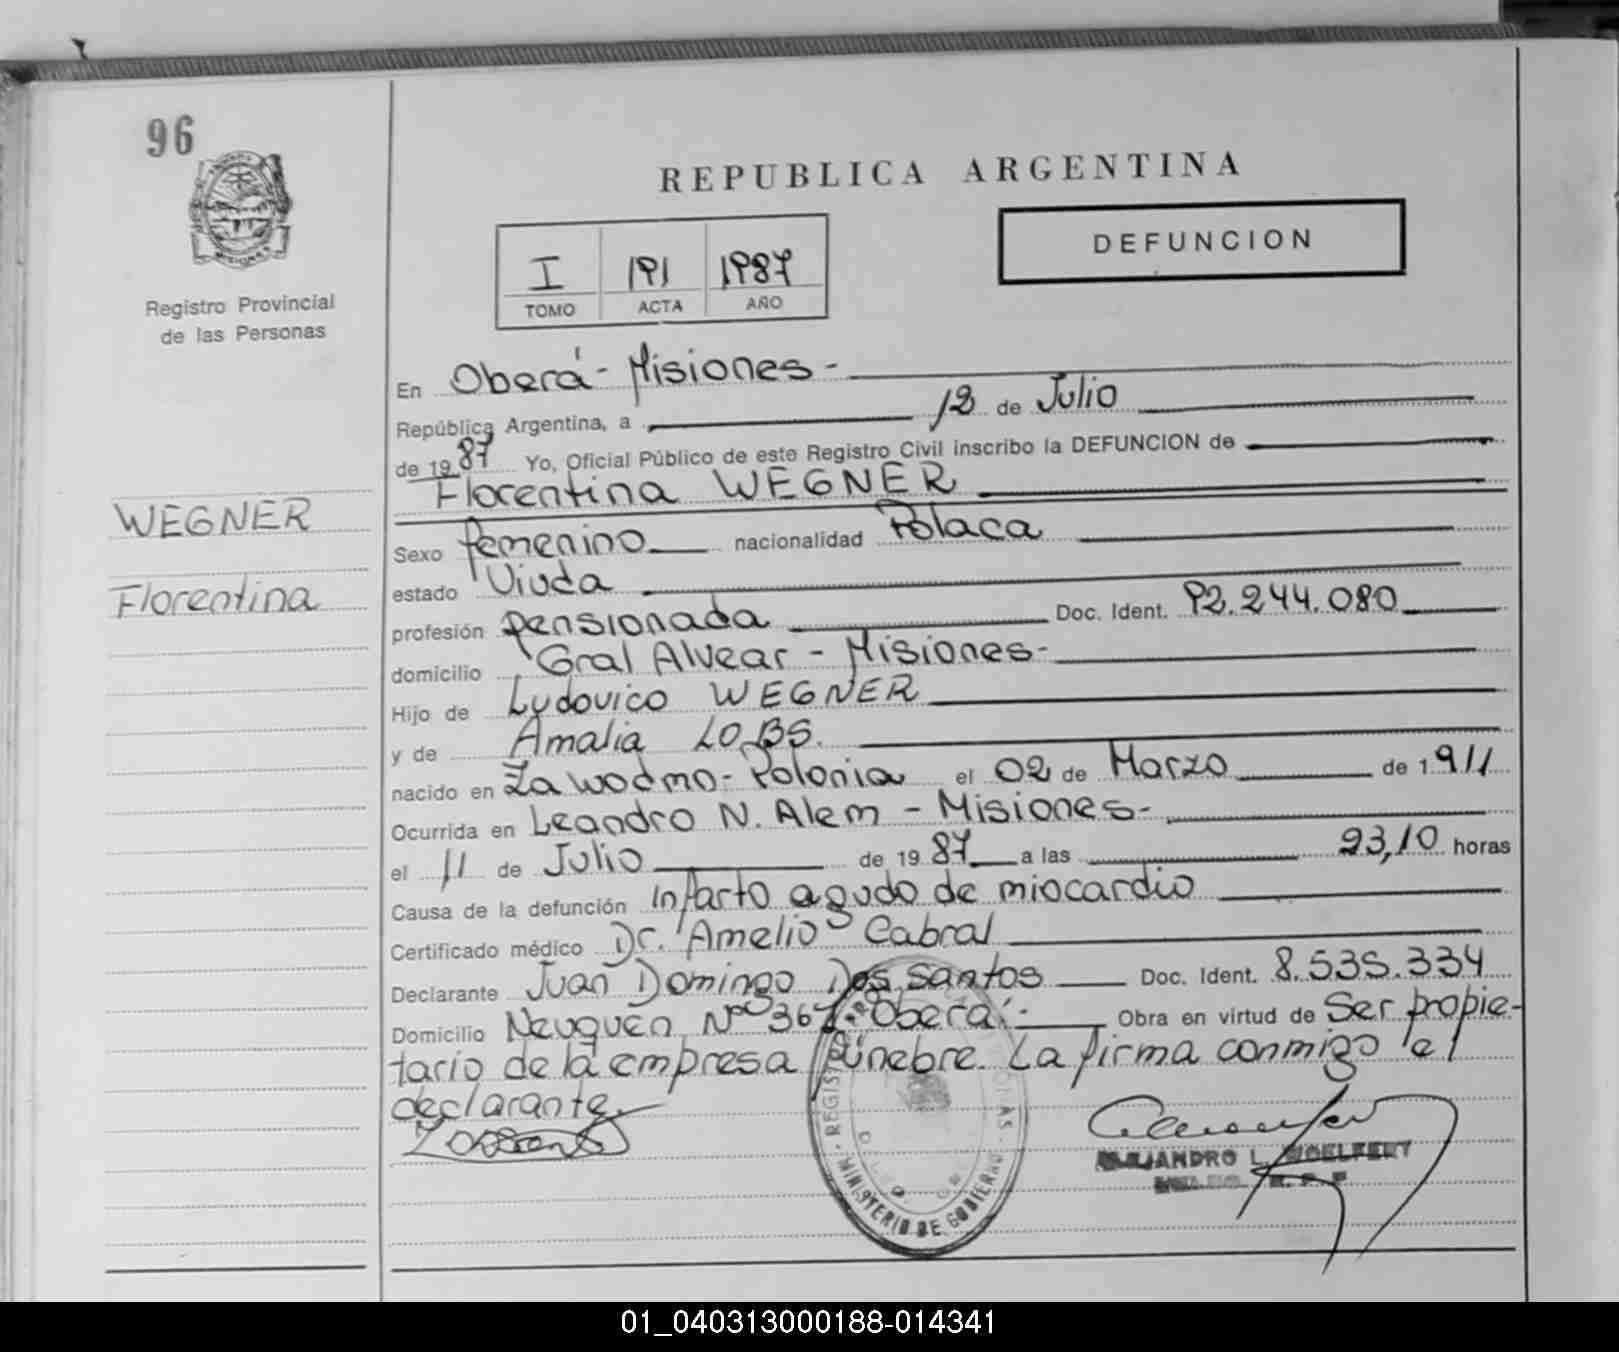 96
Registro Provincial
de las Personas
REPUBLICA ARGENTINA
I 191 1987
TOMO ACTA AÑO
DEFUNCION
WEGNER
Florentina
En Oberá - Misiones -
República Argentina, a 12 de Julio
de 1987 Yo, Oficial Público de este Registro Civil inscribo la DEFUNCION de
Florentina WEGNER
Sexo femenino nacionalidad Polaca
estado Viuda
profesión pensionada Doc. Ident. 92.244.080
domicilio Gral Alvear - Misiones -
Hijo de Ludovico WEGNER
y de Amalia LOBS.
nacido en Zawodmo - Polonia el 02 de Marzo de 1911
Ocurrida en Leandro N. Alem - Misiones -
el 11 de Julio de 1987 a las 23,10 horas
Causa de la defunción Infarto agudo de miocardio
Certificado médico Dr. Amelio Cabral
Declarante Juan Domingo Dos Santos Doc. Ident. 8.535.334
Domicilio Neuquén Nº 367 Oberá - Obra en virtud de Ser propie-
tario de la empresa fúnebre. La firma conmigo el
declarante.
ALEJANDRO L. WOELFERT
MINISTERIO DE GOBIERNO
01_040313000188-014341